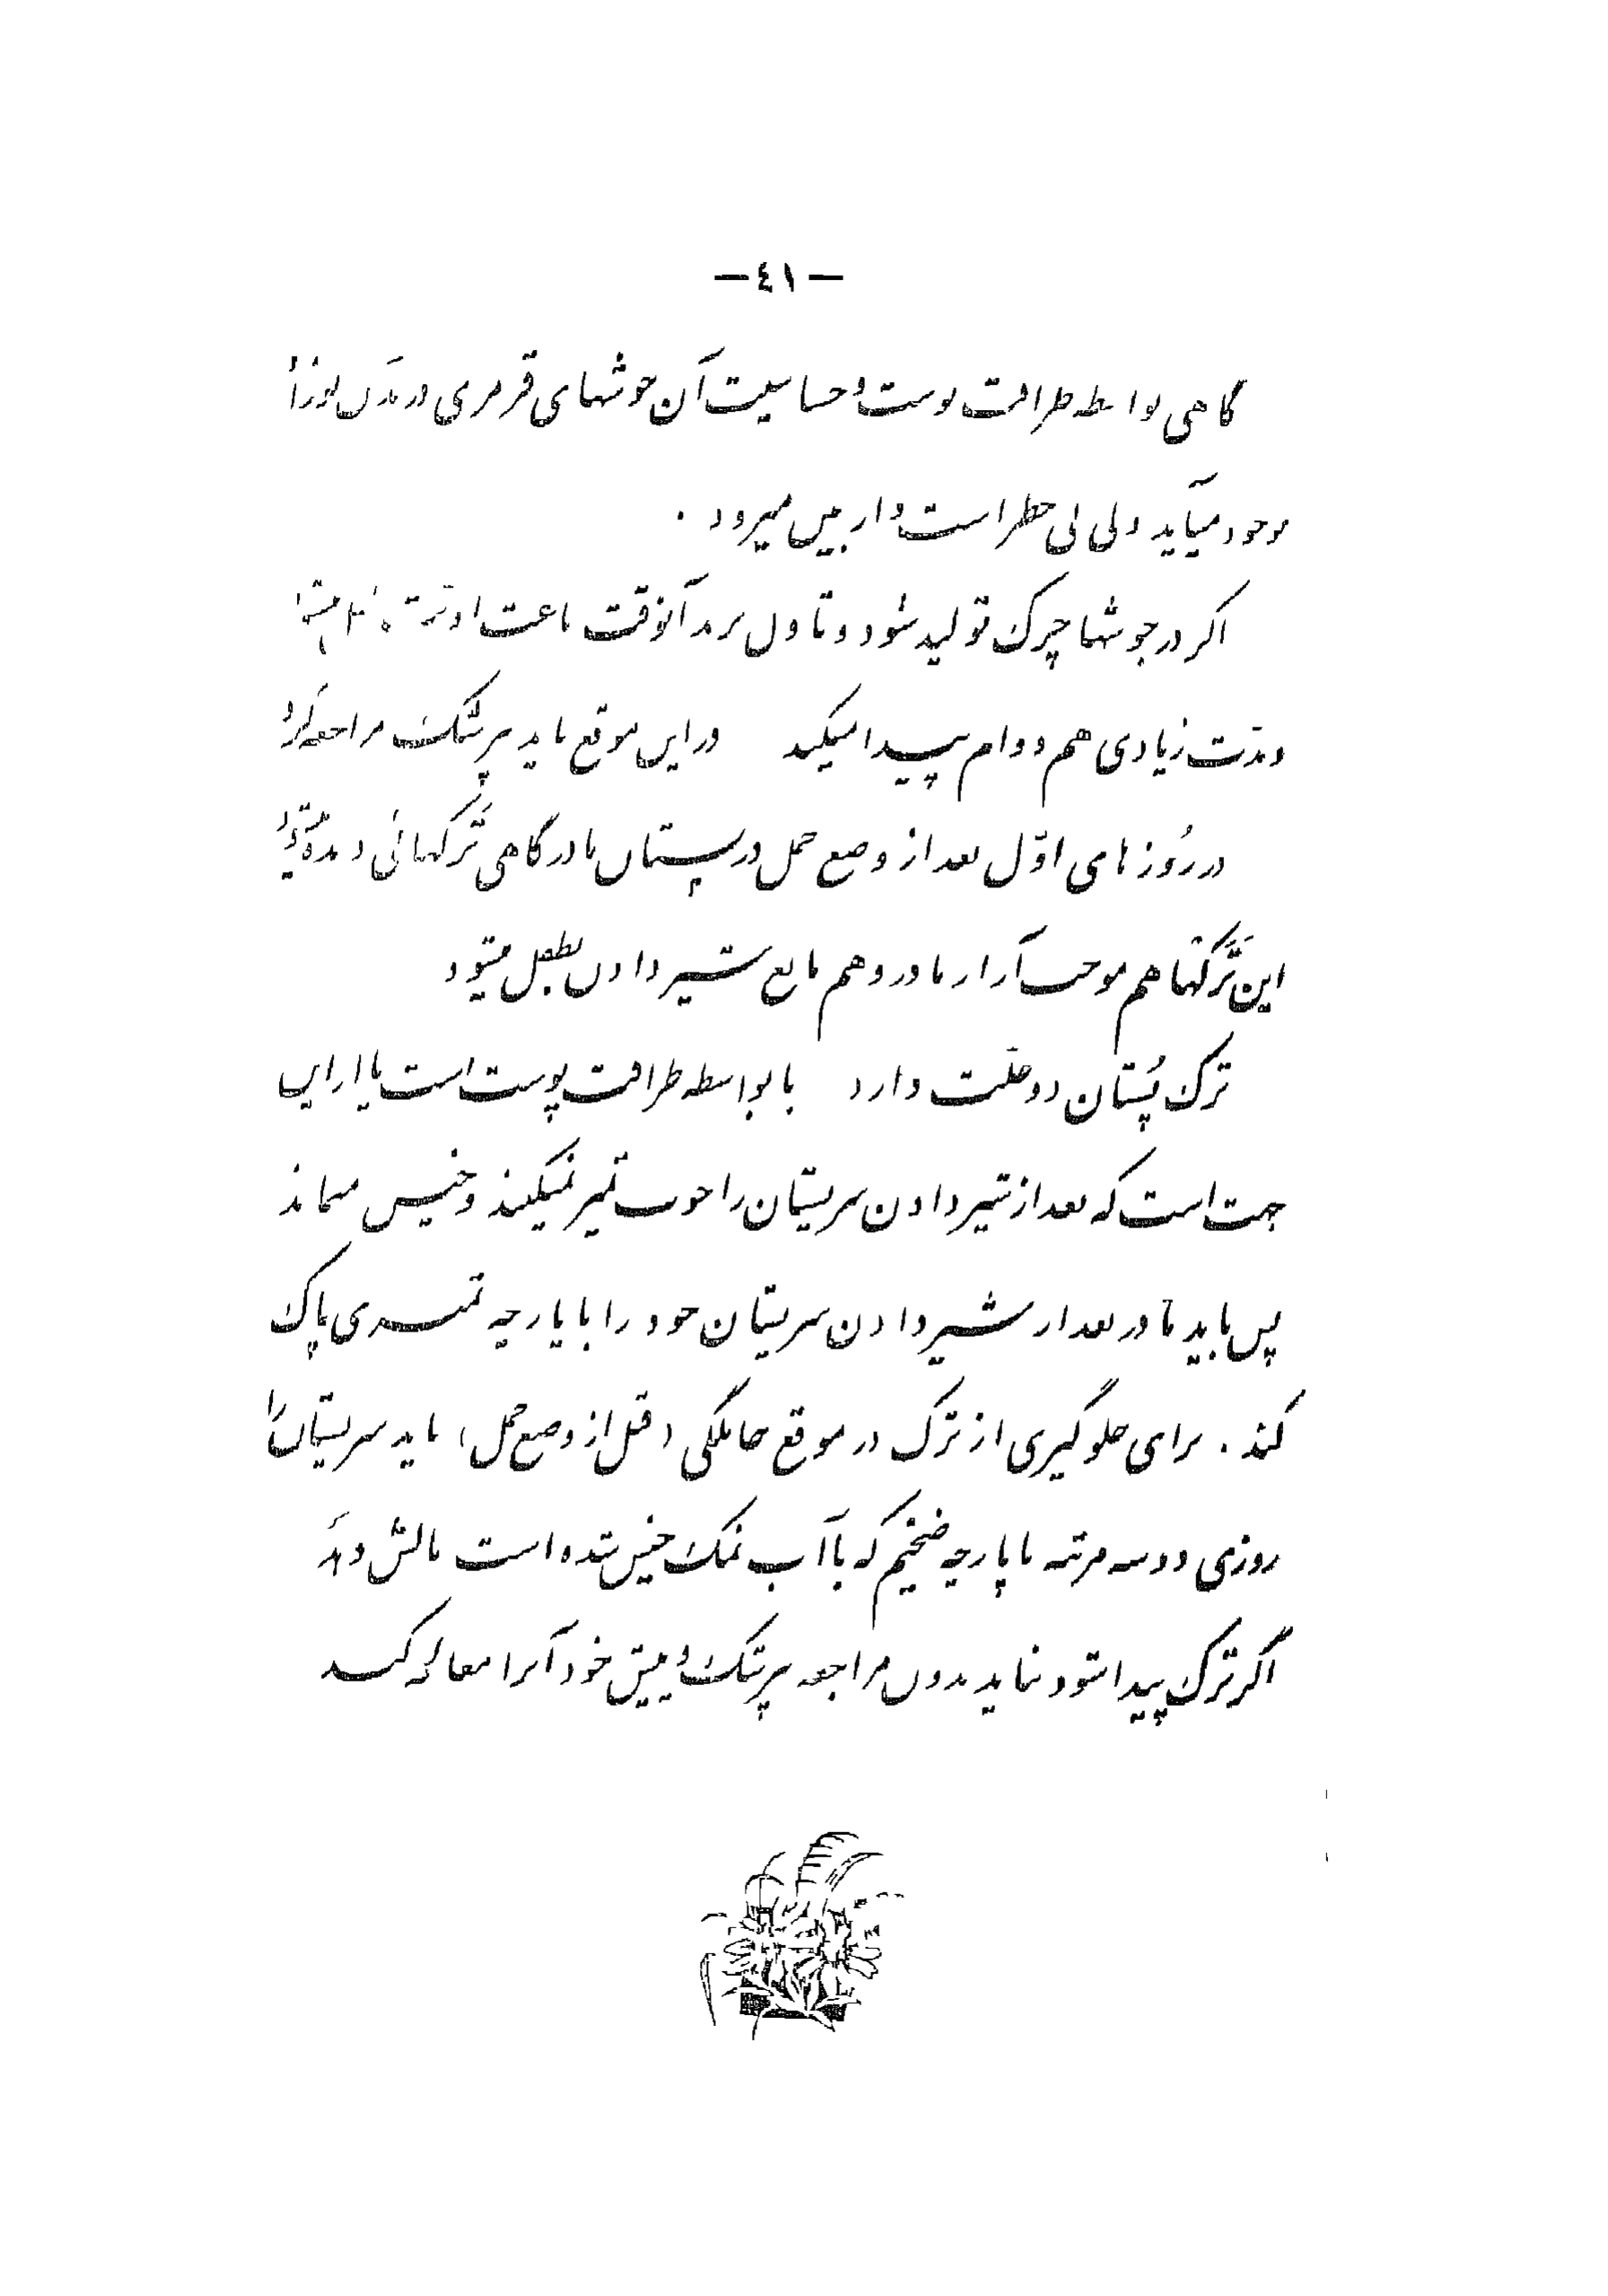 — ٤١ —
گاهی بواسطه ظرافت پوست و حساسیت آن جوشهای قرمزی در بدن نوزاد
بوجود میآید ولی بی خطر است و از بین میرود .
اگر در جوشها چرک تولید شود و تاول بزند آنوقت باعث اذیت
و مدت زیادی هم دوام پیدا میکند در این موقع باید بپزشک مراجعه کرد
در روزهای اوّل بعد از وضع حمل در پستان مادر گاهی ترکهائی دیده میشود
این ترکها هم موجب آزار مادر و هم مانع شیر دادن بطفل میشود
ترک پُستان دو علّت دارد یا بواسطه ظرافت پوست است یا از این
جهت است که بعد از شیر دادن سر پستان را خوب تمیز نمیکنند و خیس میماند
پس باید مادر بعد از شیر دادن سر پستان خود را با پارچه تمیزی پاک
کند . برای جلوگیری از ترک در موقع حاملگی (قبل از وضع حمل) باید سر پستان را
روزی دو سه مرتبه با پارچه ضخیم که با آب نمک خیس شده است مالش دهد
اگر ترک پیدا شود نباید بدون مراجعه بپزشک و پیش خود آنرا معالجه کند